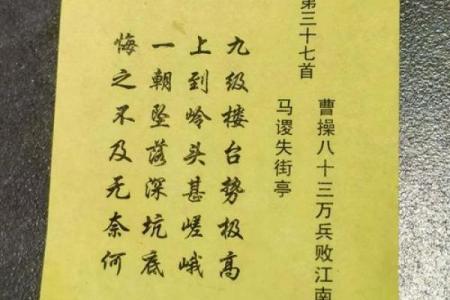 第三十七首
曹操八十三万兵败江南
马谡失街亭
九级楼台势极高
上到岭头甚嵯峨
一朝坠落深坑底
悔之不及无奈何